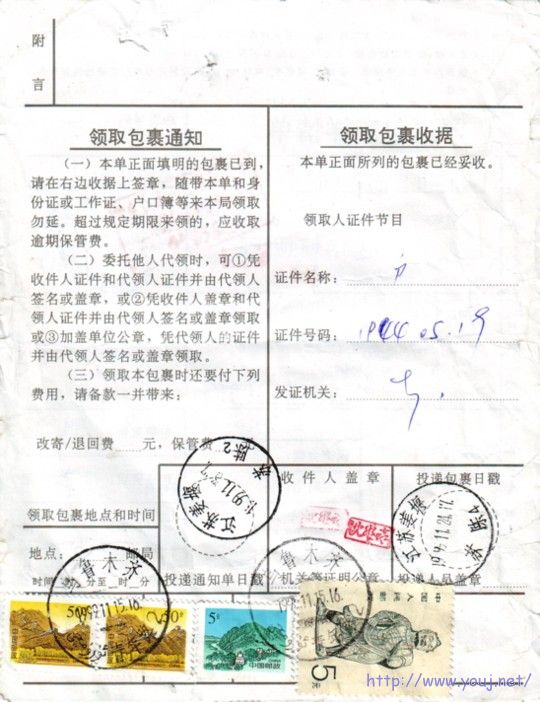 附
言
领取包裹通知
（一）本单正面填明的包裹已到，
请在右边收据上签章，随带本单和身
份证或工作证、户口簿等来本局领取
勿延。超过规定期限来领的，应收取
逾期保管费。
（二）委托他人代领时，可①凭
收件人证件和代领人证件并由代领人
签名或盖章，或②凭收件人盖章和代
领人证件并由代领人签名或盖章领取
或③加盖单位公章，凭代领人的证件
并由代领人签名或盖章领取。
（三）领取本包裹时还要付下列
费用，请备款一并带来：
改寄/退回费 元，保管费
领取包裹地点和时间
地点： 邮局
时间 时 分至 时 分
领取包裹收据
本单正面所列的包裹已经妥收。
领取人证件节目
证件名称：
证件号码：1944.05.19
发证机关：
收件人盖章
投递包裹日戳
投递通知单日戳
机关等证明公章
投递人员盖章
江苏姜堰
江苏姜堰
乌鲁木齐
1999.11.15.16
乌鲁木齐
11.15.16
50分
50分
5分
中国邮政
中国人民邮政
5
http://www.youj.net/